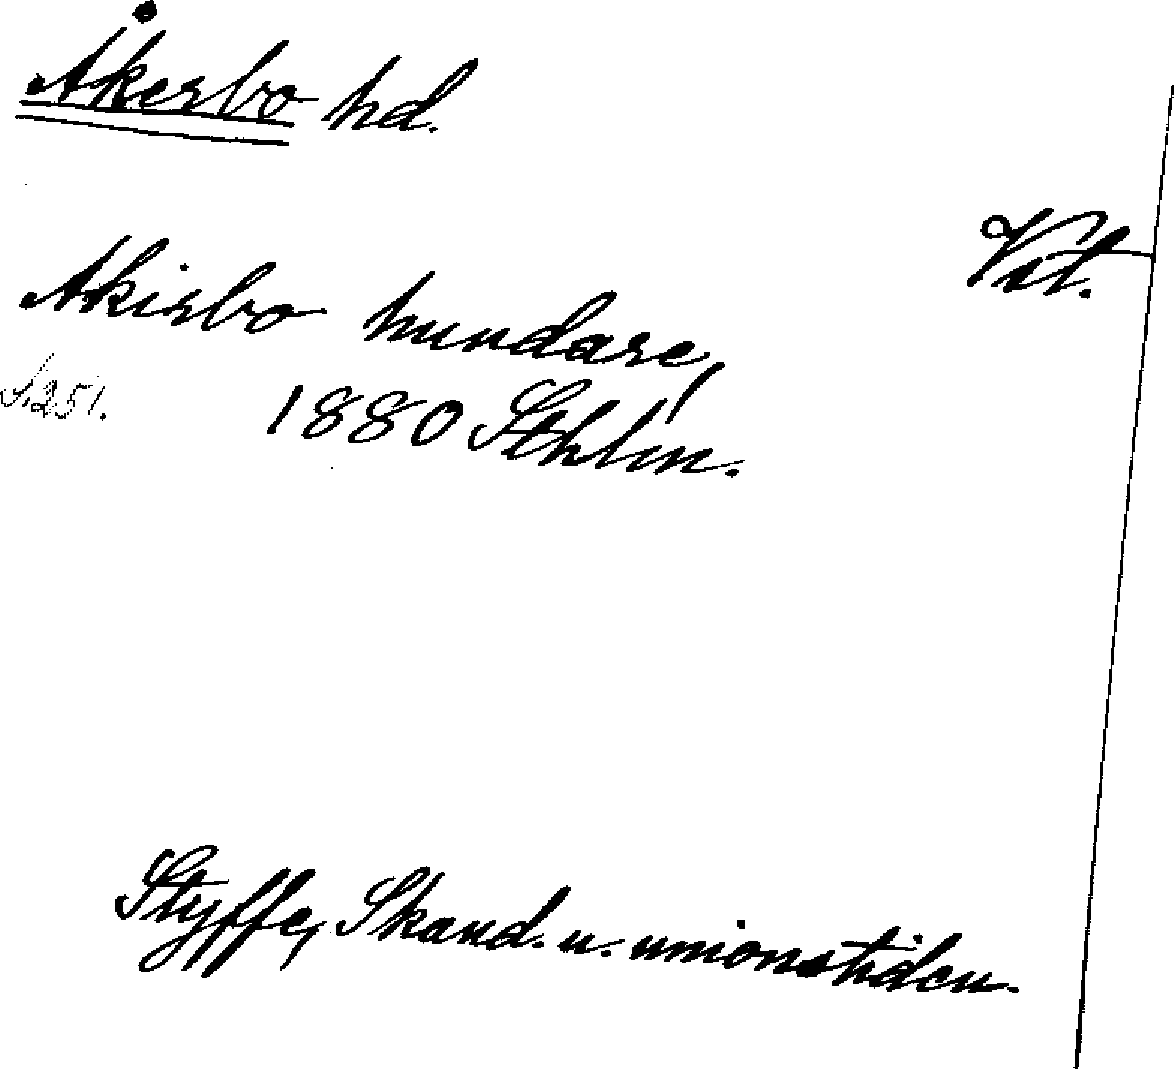 Åkerbo hd.
Vstl.
Akirbo hundare,
S. 251.
1880 Sthlm.
Styffe, Skand. u. unionstiden.